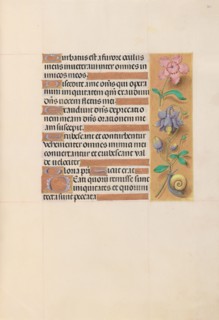 Turbatus est a furore oculus
meus inveteravi inter omnes in
imicos meos
Discedite a me oms qui opera
mini iniquitatem qm exaudivit
dns vocem fletus mei
Exaudivit dns deprecatio
nem meam dns orationem me
am suscepit
Erubescant et conturbentur
vehementer omnes inimici mei
convertantur et erubescant val
de velociter
Gloria pri Sicut erat
Beati quorum remisse sunt
iniquitates et quorum
tecta sunt peccata